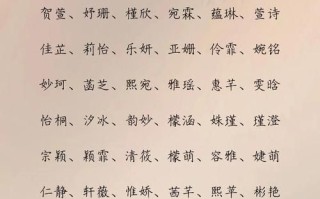 贺萱、妤珊、槿欣、宛霖、蕴琳、萱诗
佳芷、莉怡、乐妍、亚姗、伶霏、婉铭
妙珂、菡芝、熙宛、雅瑶、惠芊、雯晗
怡桐、汐冰、韵妙、檬涵、姝瑾、瑾澄
宗颖、颖霏、清筱、檬萌、容雅、婕萌
仁静、轩薇、惟娇、茜芊、熙苹、彬艳